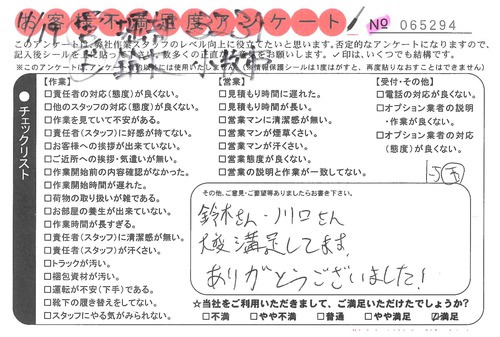 お客様不満足度アンケート
№ 065294
このアンケートは、弊社作業スタッフのレベル向上に役立てたいと思います。否定的なアンケートになりますので、
記入後シールを上に貼って 数多くの正直な 意見をお願いします。✓印は、いくつでも結構です。
※このアンケートは 以外には使用いたしません (※情報保護シールは1度はがすと、再度貼りなおすことはできません)
チェックリスト
【作業】
□責任者の対応(態度)が良くない。
□他のスタッフの対応(態度)が良くない。
□作業を見ていて不安がある。
□責任者(スタッフ)に好感が持てない。
□お客様への挨拶が出来ていない。
□ご近所への挨拶・気遣いが無い。
□作業開始前の内容確認がなかった。
□作業開始時間が遅れた。
□荷物の取り扱いが雑である。
□お部屋の養生が出来ていない。
□作業時間が長すぎる。
□責任者(スタッフ)に清潔感が無い。
□責任者(スタッフ)が汗くさい。
□トラックが汚い。
□梱包資材が汚い。
□運転が不安(下手)である。
□靴下の履き替えをしてない。
□スタッフにやる気がみられない。
【営業】
□見積もり時間に遅れた。
□見積もり時間が長い。
□営業マンに清潔感が無い。
□営業マンが煙草くさい。
□営業マンが汗くさい。
□営業態度が良くない。
□営業の説明と作業が一致してない。
【受付・その他】
□電話の対応が良くない。
□オプション業者の説明
・作業が良くない。
□オプション業者の対応
(態度)が良くない。
その他、ご意見・ご要望等ありましたらお書き下さい。
鈴木さん・川口さん
大変満足してます。
ありがとうございました!
☆当社をご利用いただきまして、ご満足いただけたでしょうか?
□不満 □やや不満 □普通 □やや満足 ☑満足